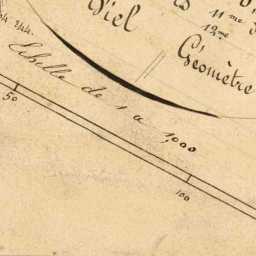 Viel
11me
12me
Géomètre
Echelle de 1 a 1,000
50
100